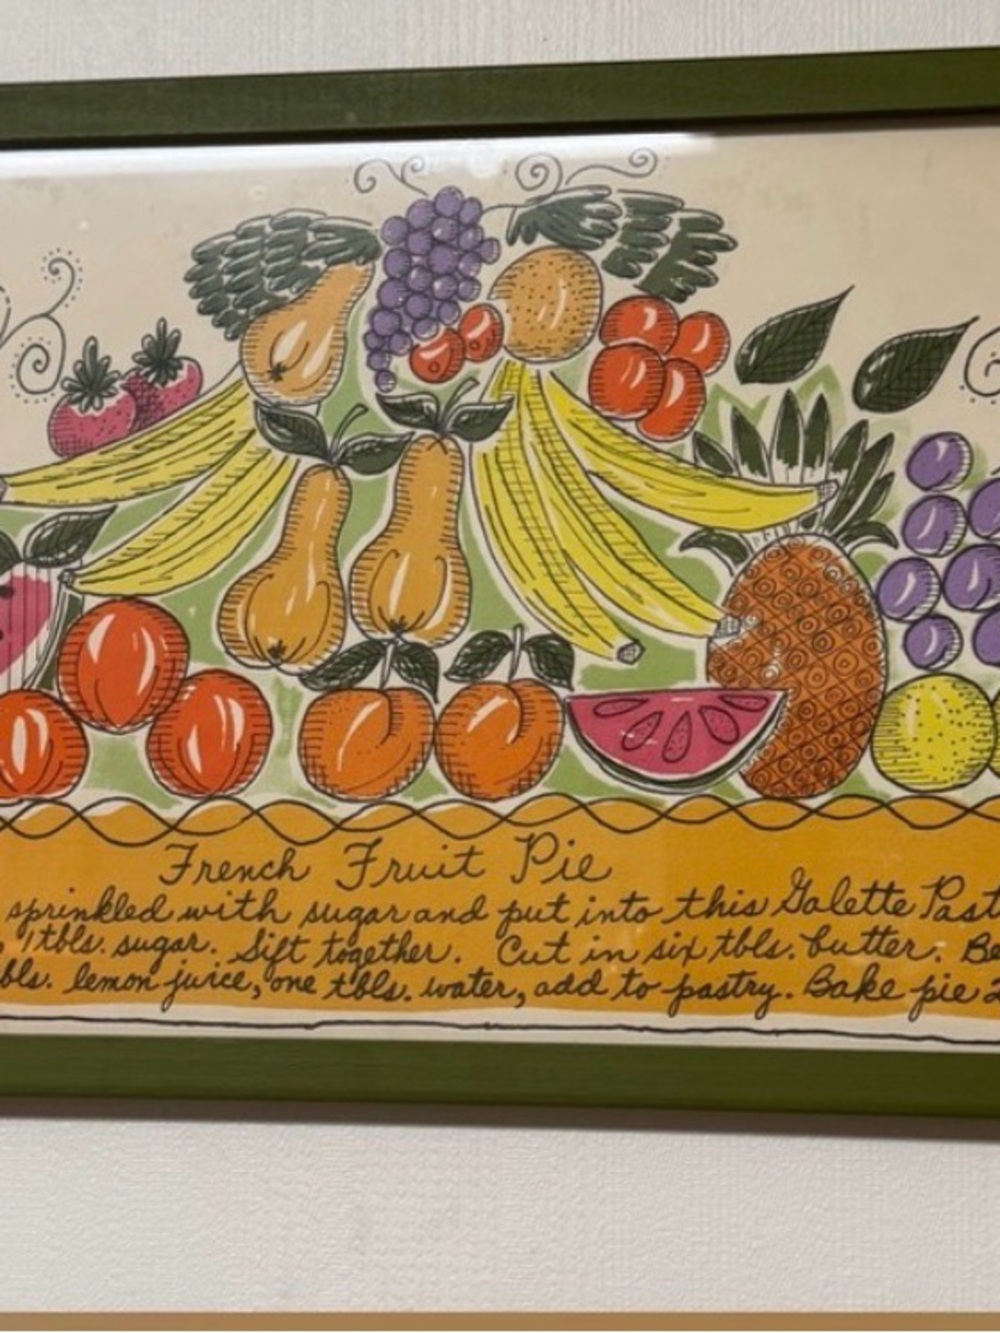 French Fruit Pie
sprinkled with sugar and put into this Galette Past
1 tbls. sugar. Sift together. Cut in six tbls. butter. Be
bls. lemon juice, one tbls. water, add to pastry. Bake pie 2